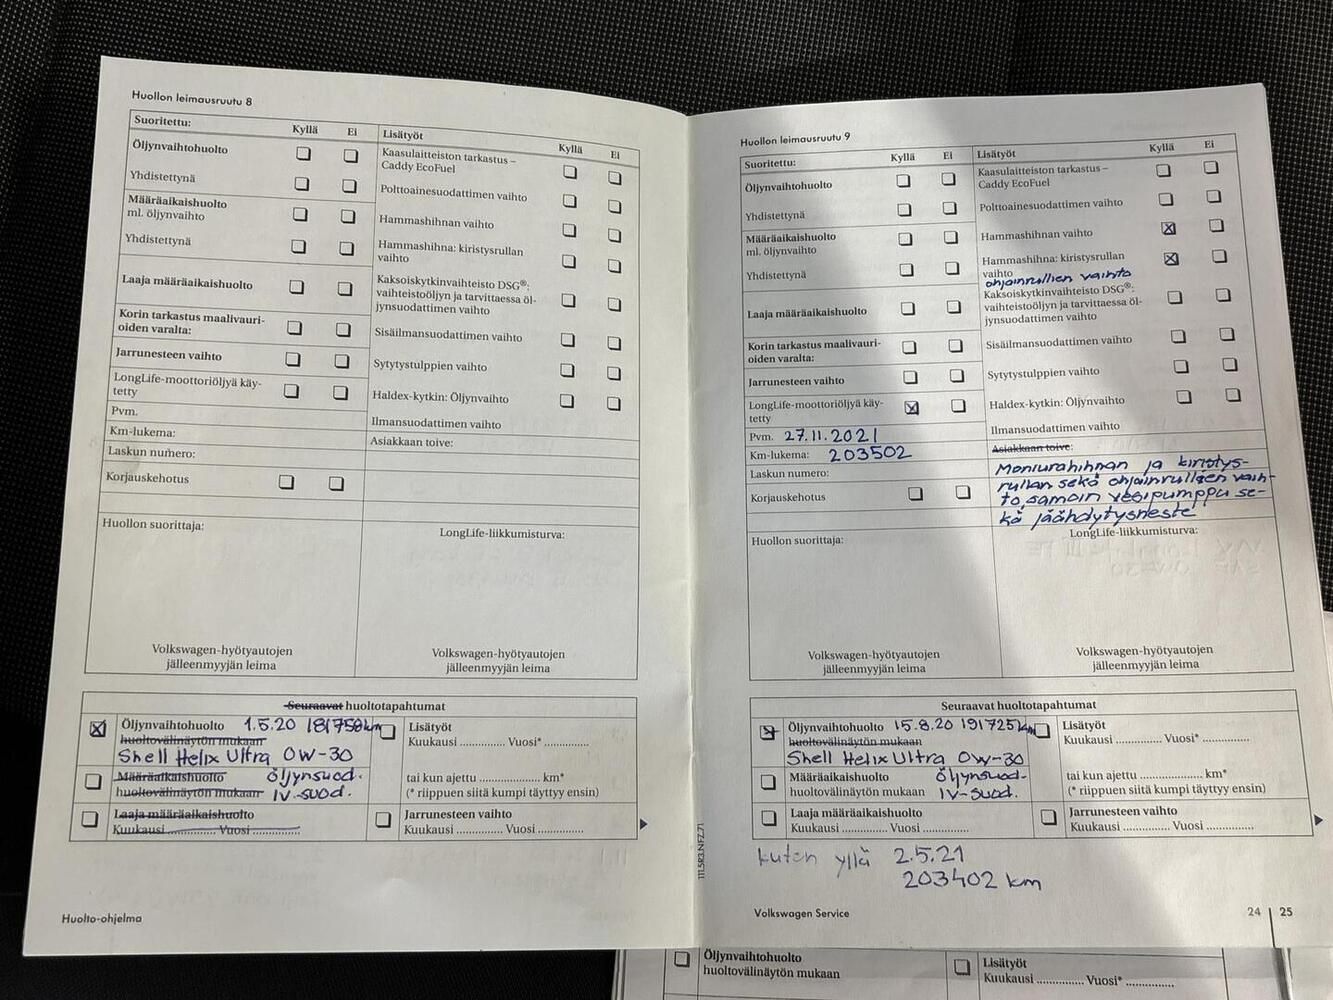 Huollon leimausruutu 8
Suoritettu: Kyllä Ei
Öljynvaihtohuolto
Yhdistettynä
Määräaikaishuolto
ml. öljynvaihto
Yhdistettynä
Laaja määräaikaishuolto
Korin tarkastus maalivauri-
oiden varalta:
Jarrunesteen vaihto
LongLife-moottoriöljyä käy-
tetty
Pvm.
Km-lukema:
Laskun numero:
Korjauskehotus
Huollon suorittaja:
Volkswagen-hyötyautojen
jälleenmyyjän leima
Lisätyöt Kyllä Ei
Kaasulaitteiston tarkastus –
Caddy EcoFuel
Polttoainesuodattimen vaihto
Hammashihnan vaihto
Hammashihna: kiristysrullan
vaihto
Kaksoiskytkinvaihteisto DSG®:
vaihteistoöljyn ja tarvittaessa öl-
jynsuodattimen vaihto
Sisäilmansuodattimen vaihto
Sytytystulppien vaihto
Haldex-kytkin: Öljynvaihto
Ilmansuodattimen vaihto
Asiakkaan toive:
LongLife-liikkumisturva:
Volkswagen-hyötyautojen
jälleenmyyjän leima
Seuraavat huoltotapahtumat
Öljynvaihtohuolto 1.5.20 181758km
huoltovälinäytön mukaan
Shell Helix Ultra 0W-30
Määräaikaishuolto öljynsuod.
huoltovälinäytön mukaan IV-suod.
Laaja määräaikaishuolto
Kuukausi ............ Vuosi ............
Lisätyöt
Kuukausi ............ Vuosi* ............
tai kun ajettu ................ km*
(* riippuen siitä kumpi täyttyy ensin)
Jarrunesteen vaihto
Kuukausi ............ Vuosi ............
Huolto-ohjelma
111.5R3.NFZ.71
Huollon leimausruutu 9
Suoritettu: Kyllä Ei
Öljynvaihtohuolto
Yhdistettynä
Määräaikaishuolto
ml. öljynvaihto
Yhdistettynä
Laaja määräaikaishuolto
Korin tarkastus maalivauri-
oiden varalta:
Jarrunesteen vaihto
LongLife-moottoriöljyä käy-
tetty
Pvm. 27.11.2021
Km-lukema: 203502
Laskun numero:
Korjauskehotus
Huollon suorittaja:
Volkswagen-hyötyautojen
jälleenmyyjän leima
Lisätyöt Kyllä Ei
Kaasulaitteiston tarkastus –
Caddy EcoFuel
Polttoainesuodattimen vaihto
Hammashihnan vaihto
Hammashihna: kiristysrullan
vaihto
ohjainrullien vaihto
Kaksoiskytkinvaihteisto DSG®:
vaihteistoöljyn ja tarvittaessa öl-
jynsuodattimen vaihto
Sisäilmansuodattimen vaihto
Sytytystulppien vaihto
Haldex-kytkin: Öljynvaihto
Ilmansuodattimen vaihto
Asiakkaan toive:
Moniurahihnan ja kiristys-
rullan sekä ohjainrullien vaih-
to, samoin vesipumppu se-
kä jäähdytysneste
LongLife-liikkumisturva:
Volkswagen-hyötyautojen
jälleenmyyjän leima
Seuraavat huoltotapahtumat
Öljynvaihtohuolto 15.8.20 191725km
huoltovälinäytön mukaan
Shell Helix Ultra 0W-30
Määräaikaishuolto öljynsuod-
huoltovälinäytön mukaan IV-suod.
Laaja määräaikaishuolto
Kuukausi ............ Vuosi ............
Lisätyöt
Kuukausi ............ Vuosi* ............
tai kun ajettu ................ km*
(* riippuen siitä kumpi täyttyy ensin)
Jarrunesteen vaihto
Kuukausi ............ Vuosi ............
kuten yllä 2.5.21
203402 km
Volkswagen Service
24 | 25
Öljynvaihtohuolto
huoltovälinäytön mukaan
Lisätyöt
Kuukausi ............ Vuosi* ............